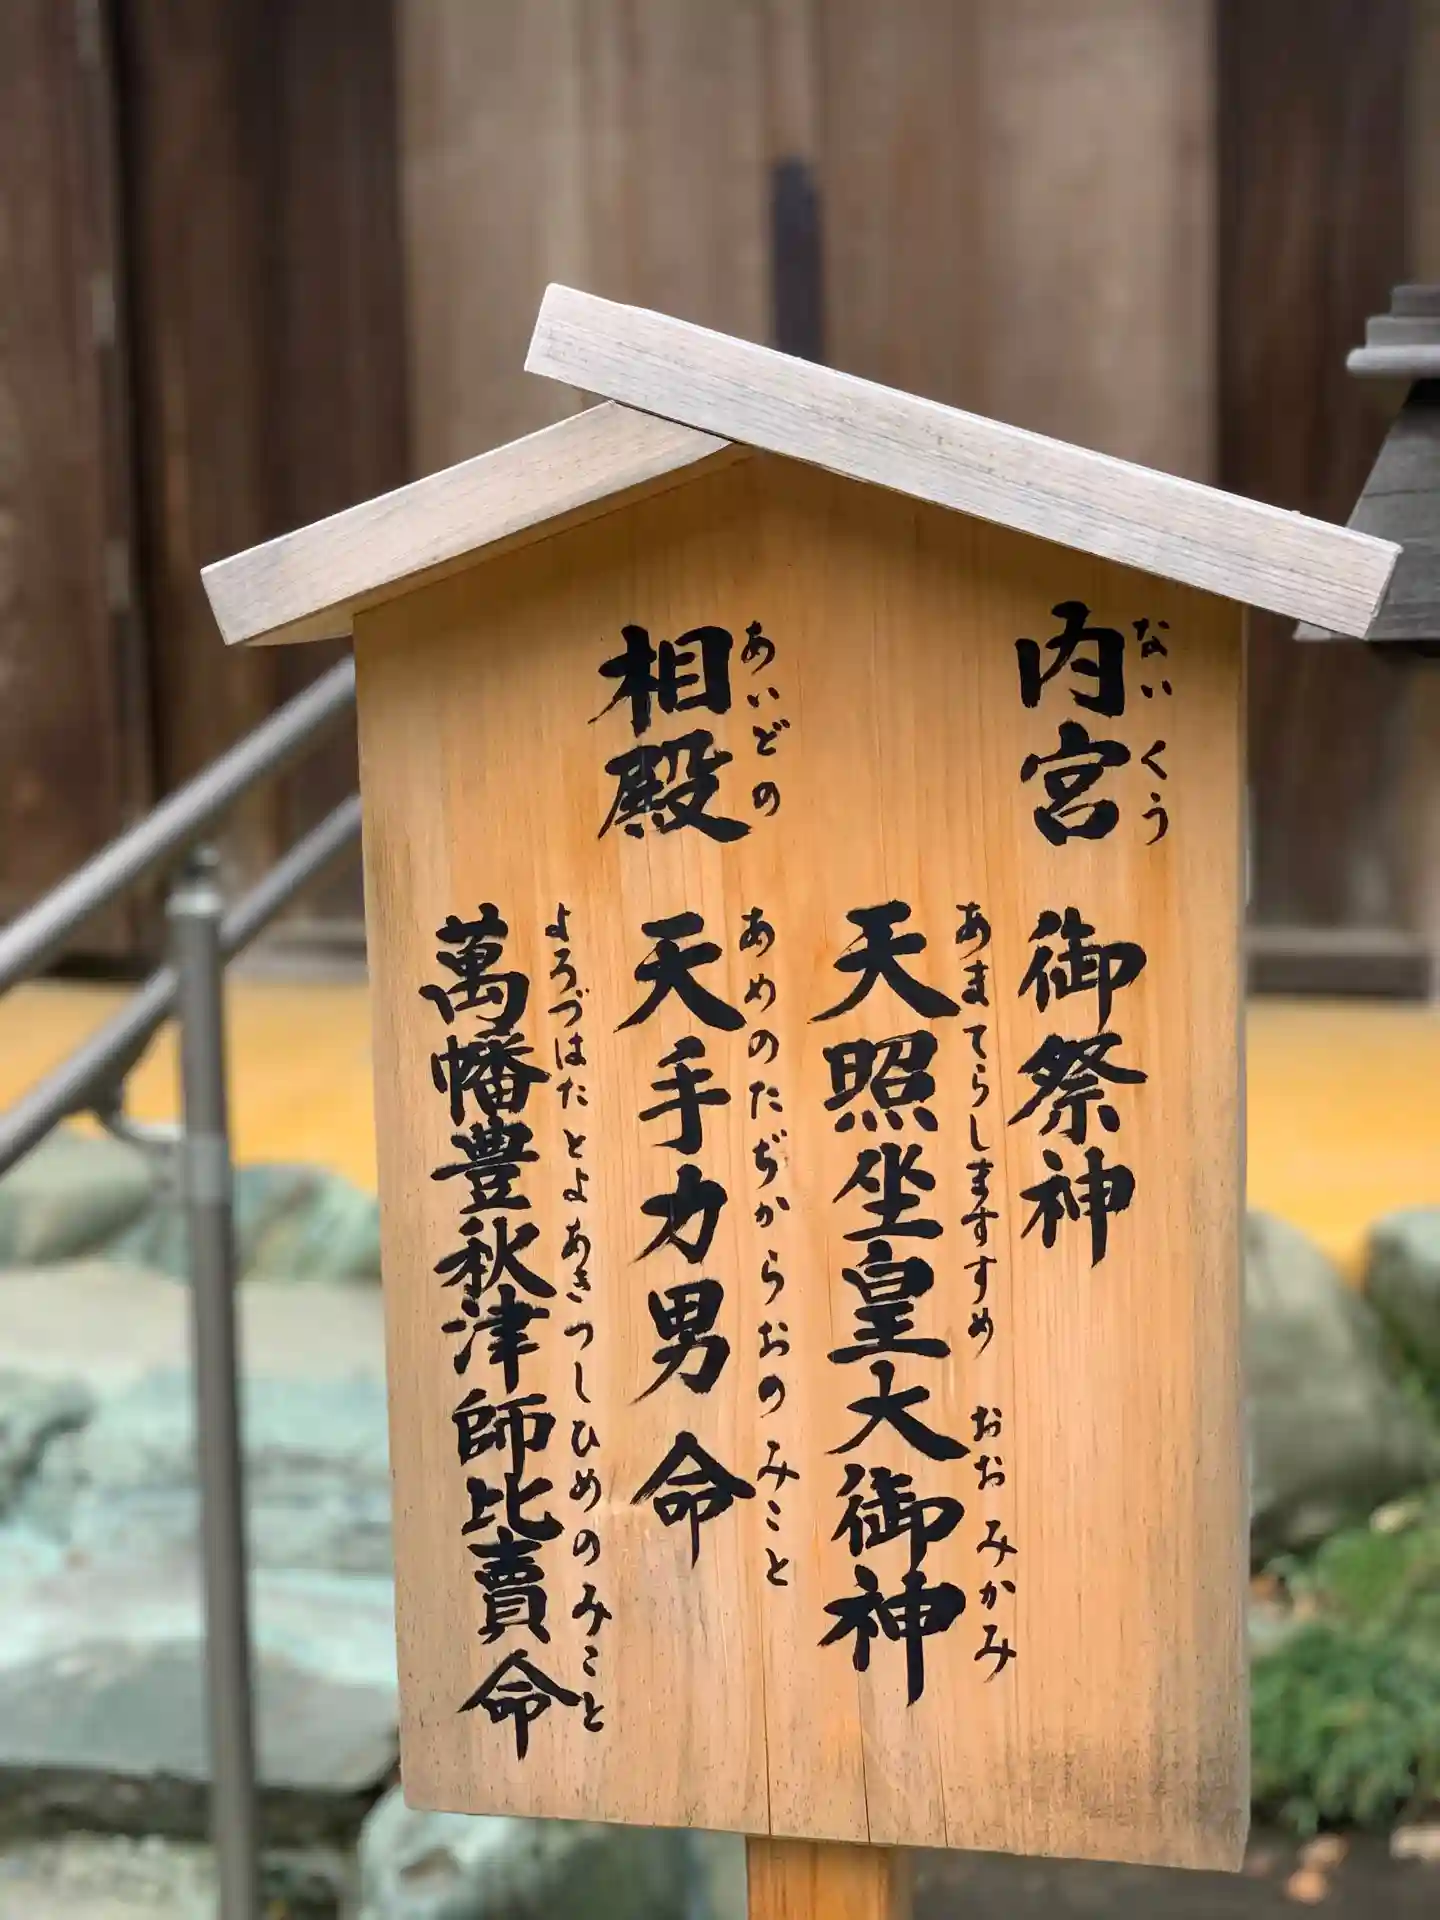 内宮 御祭神
ないくう
天照坐皇大御神
あまてらしますすめ おおみかみ
相殿 天手力男命
あいどの あめのたぢからおのみこと
萬幡豊秋津師比賣命
よろづはたとよあきつしひめのみこと